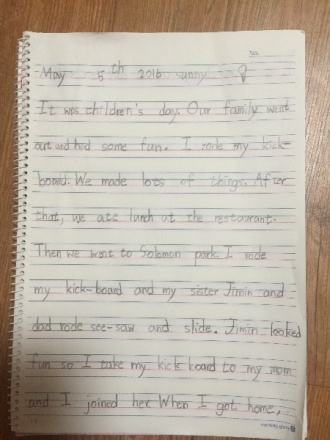 May 5th 2016 sunny
It was children's day. Our family went
out and had some fun. I rode my kick-
board. We made lots of things. After
that, we ate lunch at the restaurant.
Then we went to Solomon park. I rode
my kick-board and my sister Jimin and
dad rode see-saw and slide. Jimin looked
fun so I take my kick board to my mom
and I joined her. When I got home,